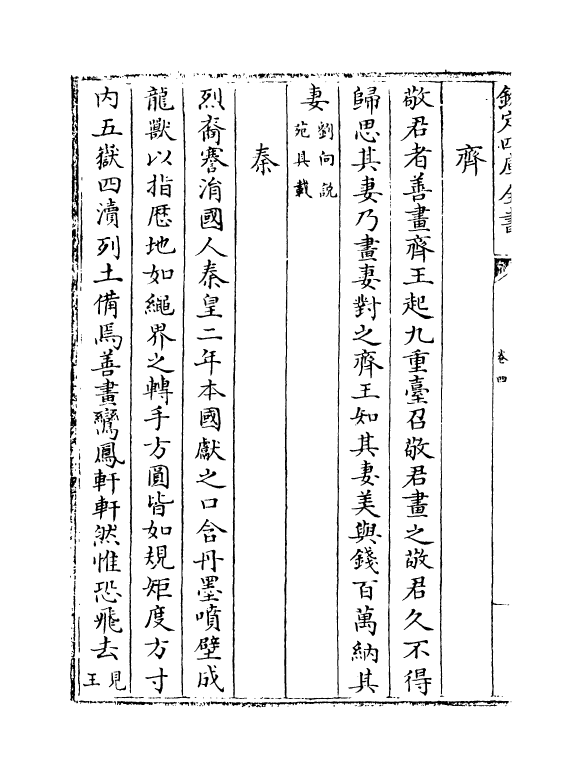 欽定四庫全書
卷四
齊
敬君者善畫齊王起九重臺召敬君畫之敬君久不得
歸思其妻乃畫妻對之齊王知其妻美與錢百萬納其
妻劉向說
苑具載
秦
烈裔謇涓國人秦皇二年本國獻之口含丹墨噴壁成
龍獸以指歴地如繩界之轉手方圓皆如規矩度方寸
內五嶽四瀆列土備焉善畫鸞鳳軒軒然惟恐飛去見
王